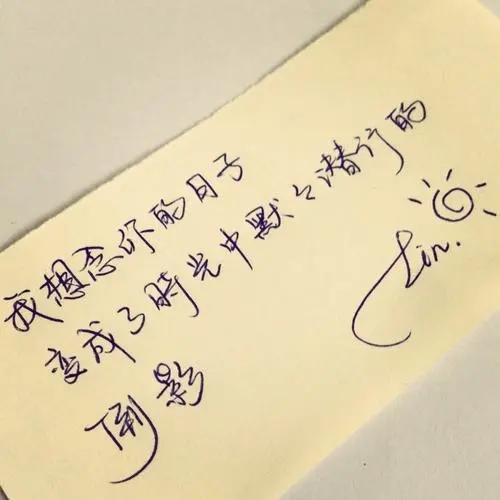 我想念你的日子
变成了時光中默々潜行的
倒影
Lin.